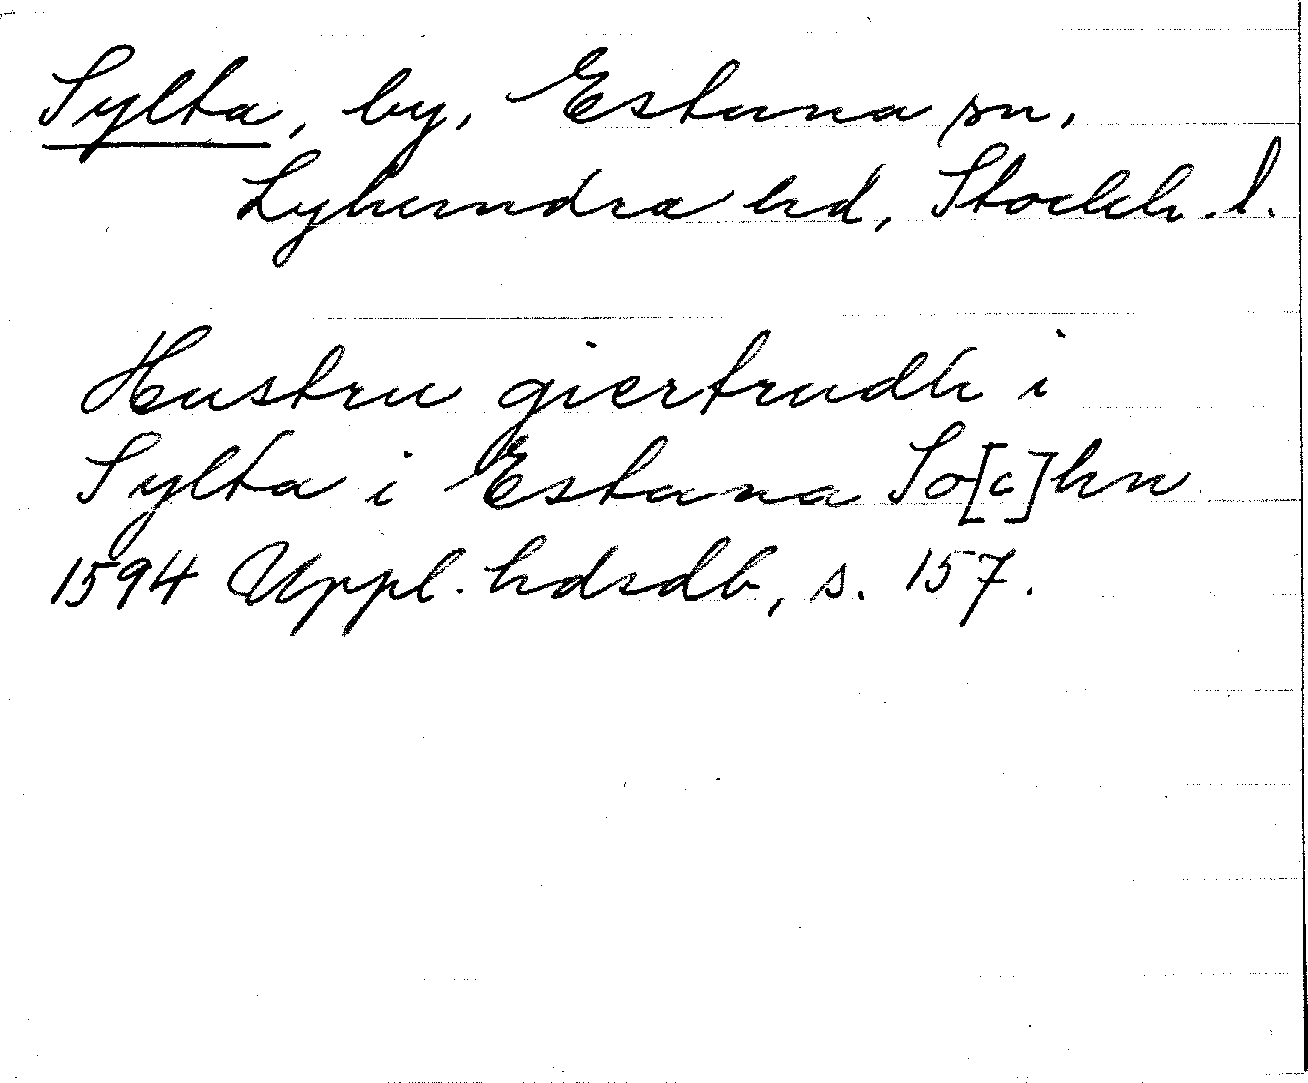 Sylta, by, Estuna sn,
Lyhundra hd, Stockh. l.
Hustru giertrudh i
Sylta i Estuna So[c]hn
1594 Uppl. hdsdb, s. 157.